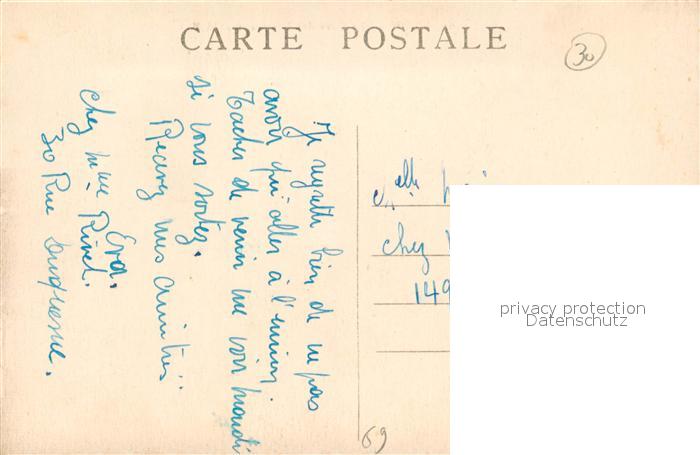 CARTE POSTALE
30
Je regrette bien de ne pas
avoir qu'aller à l'
Tacher de venir me voir mardi
si vous sortez.
Recevez mes amitiés
Eva.
Chez Mme Rivet.
30 Rue Duquesne.
Melle
chez
149
69
privacy protection
Datenschutz